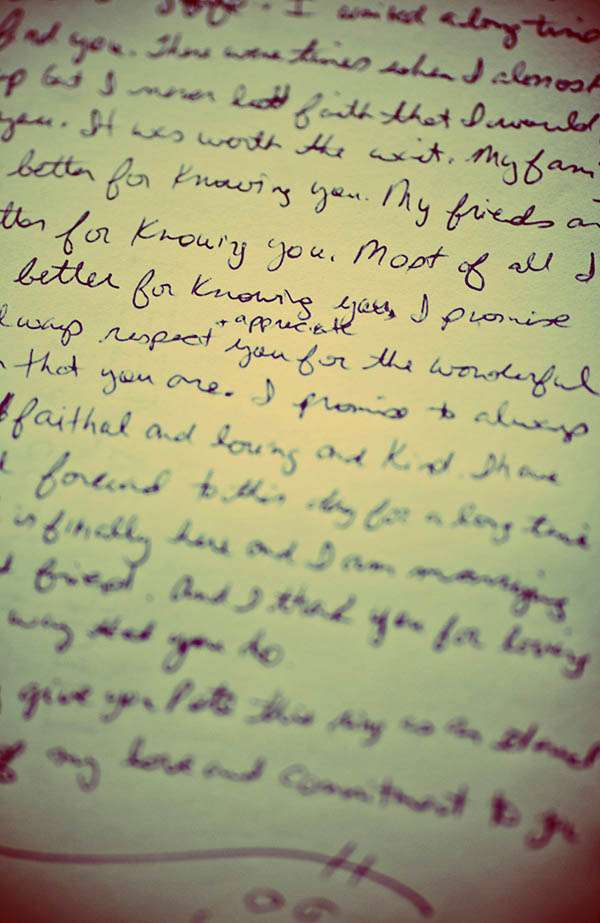 I waited a long time
find you. There were times when I almost
up but I never lost faith that I would
you. It was worth the wait. My fami
better for knowing you. My frieds a
tter for knowing you. Most of all I
better for knowing you, I promise
lways respect + appreciate you for the wonderful
that you are. I promise to always
faithal and loving and kind. I have
forward to this day for a long time
is finally here and I am marrying
friend. And I thank you for loving
way that you do
give you this ring as an
my love and commitment to you